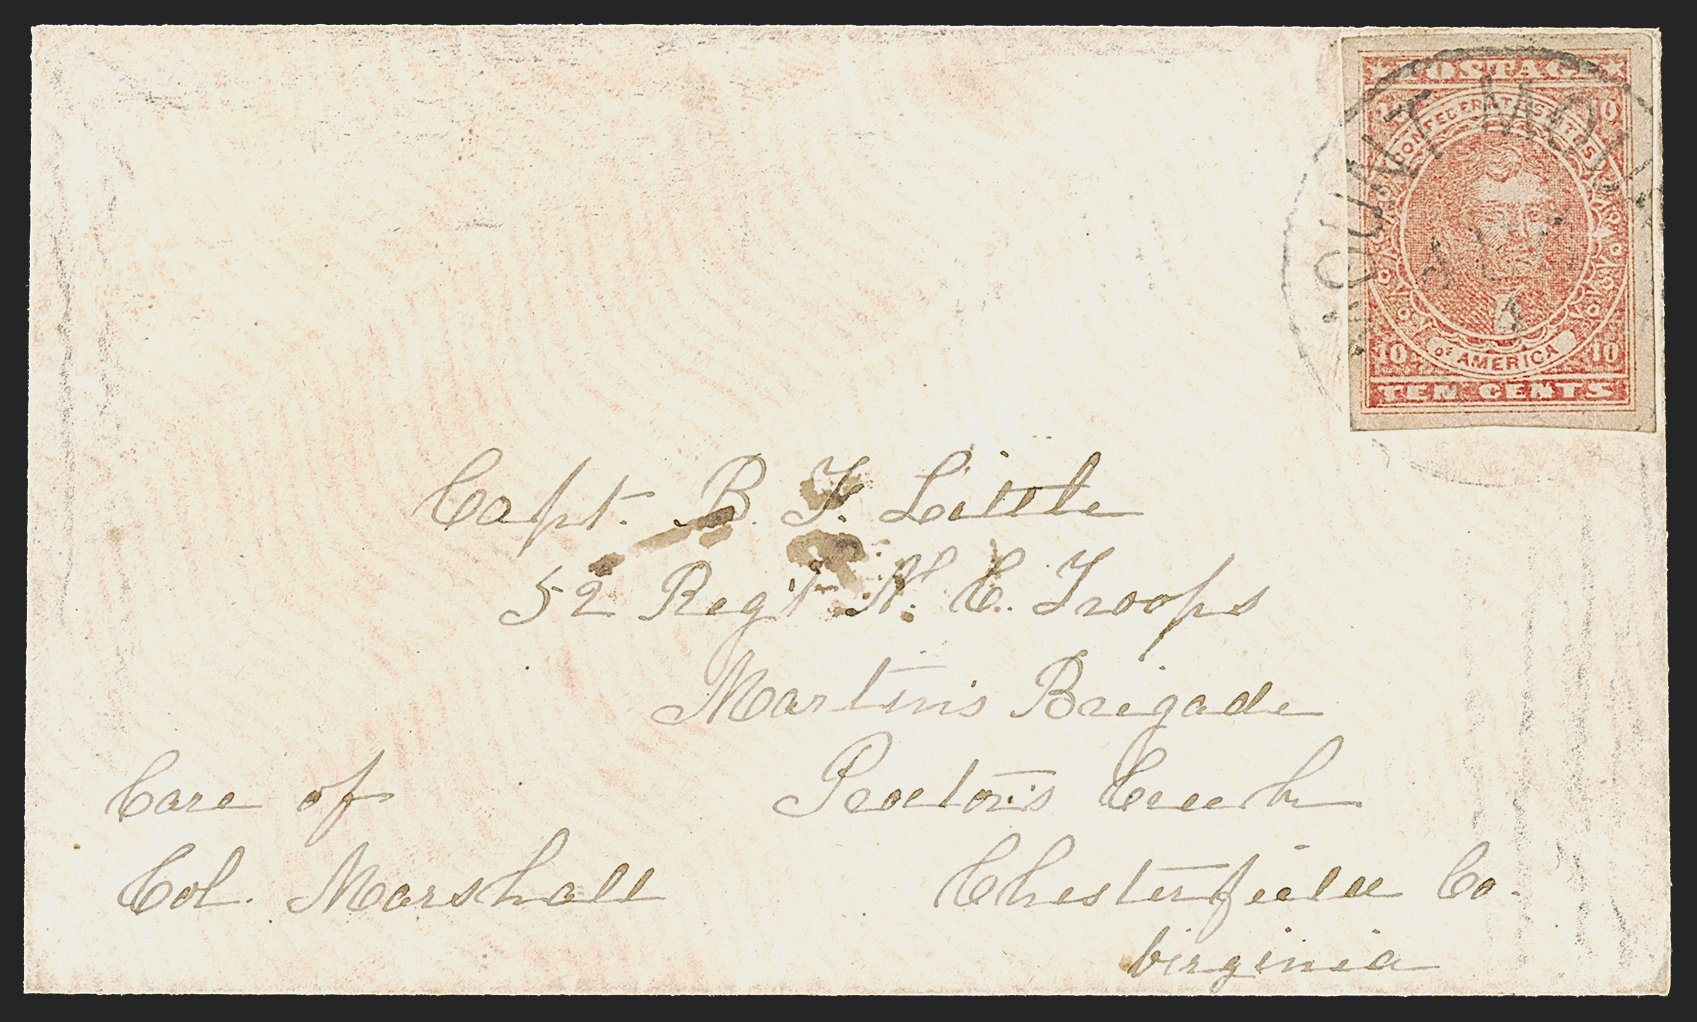 POSTAGE
CONFEDERATE STATES
OF AMERICA
10 10
TEN CENTS
MOUNT MOU
AUG
Capt. B. F. Little
52 Reg't N. C. Troops
Martin's Brigade
Proctor's Creek
Chesterfield Co.
Virginia
Care of
Col. Marshall